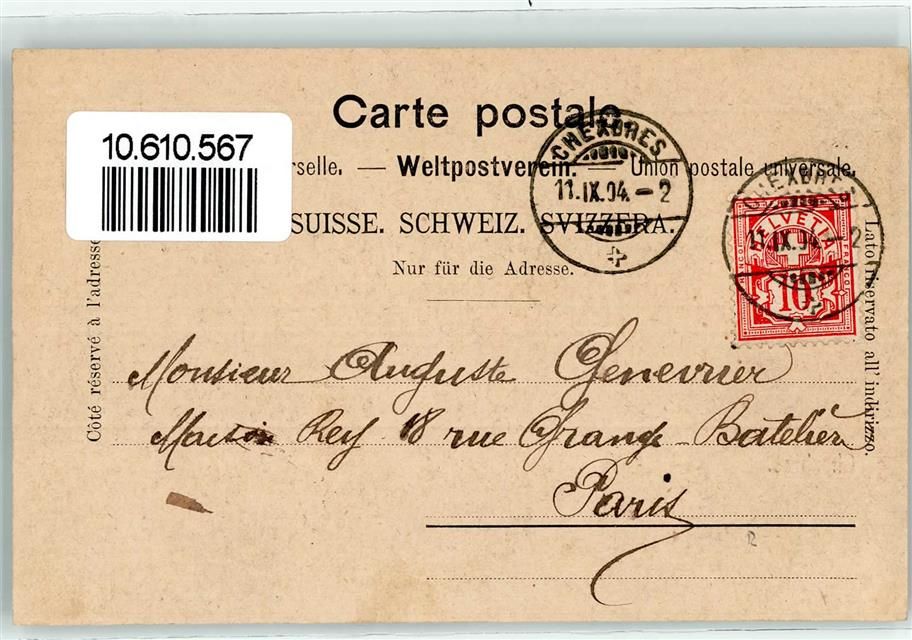 Carte postale
10.610.567
rselle. — Weltpostverein. — Union postale universale.
SUISSE. SCHWEIZ. SVIZZERA.
Nur für die Adresse.
CHEXBRES
11.IX.04.-2
CHEXBRES
11.IX.04.-2
HELVETIA
FRANCO
10
Côté réservé à l'adresse
Lato riservato all' indirizzo.
Monsieur Auguste Genevrier
Maison Rey 18 rue Grange-Batelière
Paris